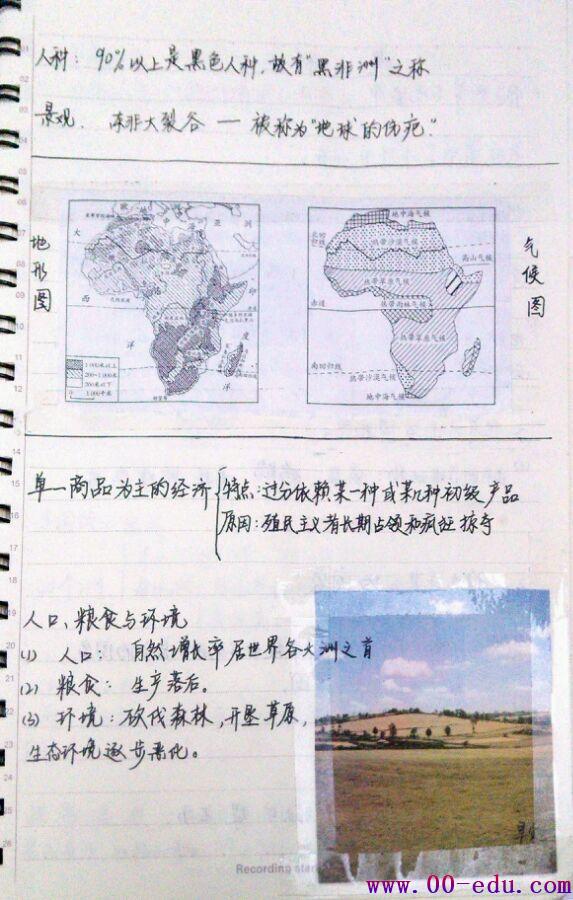 人种：90%以上是黑色人种，故有"黑非洲"之称
景观：东非大裂谷 — 被称为"地球的伤疤"
地形图
气候图
大
西
洋
印
度
洋
亚
洲
1 000米以上
200~1 000米
200米以下
地中海气候
北回归线
热带沙漠气候
高山气候
热带草原气候
赤道
热带雨林气候
热带草原气候
南回归线
热带沙漠气候
地中海气候
单一商品为主的经济
特点：过分依赖某一种或某几种初级产品
原因：殖民主义者长期占领和疯狂掠夺
人口、粮食与环境
(1) 人口：自然增长率居世界各大洲之首
(2) 粮食：生产落后。
(3) 环境：砍伐森林，开垦草原，
生态环境逐步恶化。
www.00-edu.com